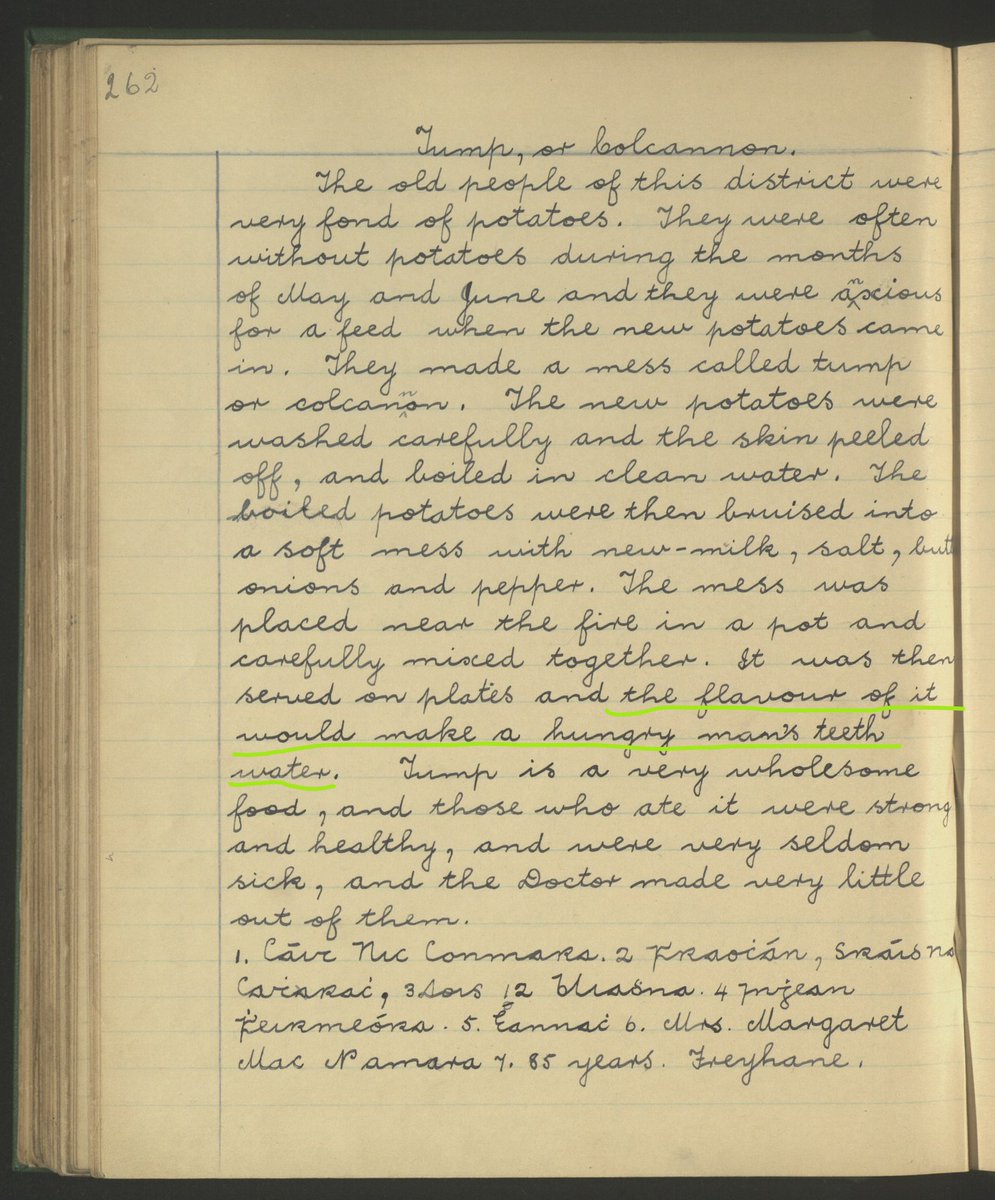 262
Tump, or Colcannon.
The old people of this district were
very fond of potatoes. They were often
without potatoes during the months
of May and June and they were anxious
for a feed when the new potatoes came
in. They made a mess called tump
or colcannon. The new potatoes were
washed carefully and the skin peeled
off, and boiled in clean water. The
boiled potatoes were then bruised into
a soft mess with new-milk, salt, butt
onions and pepper. The mess was
placed near the fire in a pot and
carefully mixed together. It was then
served on plates and the flavour of it
would make a hungry man's teeth
water. Tump is a very wholesome
food, and those who ate it were strong
and healthy, and were very seldom
sick, and the Doctor made very little
out of them.
1. Cáit Nic Conmara. 2 Fraocán, Sráis na
3 Aois 12 Bliaḋna. 4 Inġean
Feirmeóra. 5. 6. Mrs. Margaret
Mac Namara 7. 85 years. Freyhane.